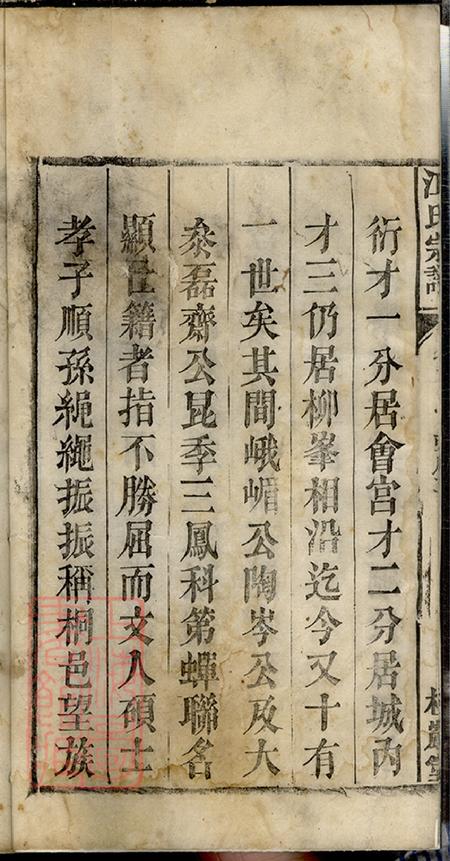 江氏宗譜
衍才一分居會宫才二分居城內
才三仍居柳峯相沿迄今又十有
一世矣其間峨嵋公陶岑公及大
泰磊齋公昆季三鳳科第蟬聯名
顯仕籍者指不勝屈而文人碩士
孝子順孫繩繩振振稱桐邑望族